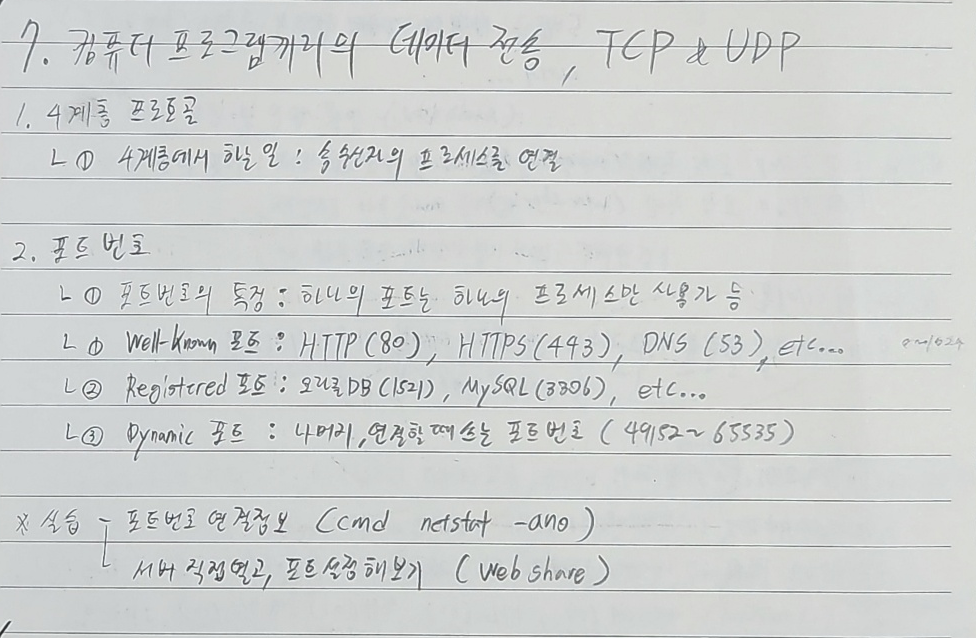 7. 컴퓨터 프로그램끼리의 데이터 전송, TCP & UDP
1. 4계층 프로토콜
ㄴ ① 4계층에서 하는 일 : 송수신자의 프로세스를 연결
2. 포트 번호
ㄴ ① 포트번호의 특징 : 하나의 포트는 하나의 프로세스만 사용가능
ㄴ ① Well-known 포트 : HTTP(80), HTTPS(443), DNS (53), etc... 0~1024
ㄴ ② Registered 포트 : 오라클DB(1521), MySQL(3306), etc...
ㄴ ③ Dynamic 포트 : 나머지, 연결할때 쓰는 포트 번호 (49152~65535)
※ 실습 - 포트번호 연결정보 (cmd netstat -ano)
ㄴ 서버 직접열고, 포트설정해보기 (Web share)